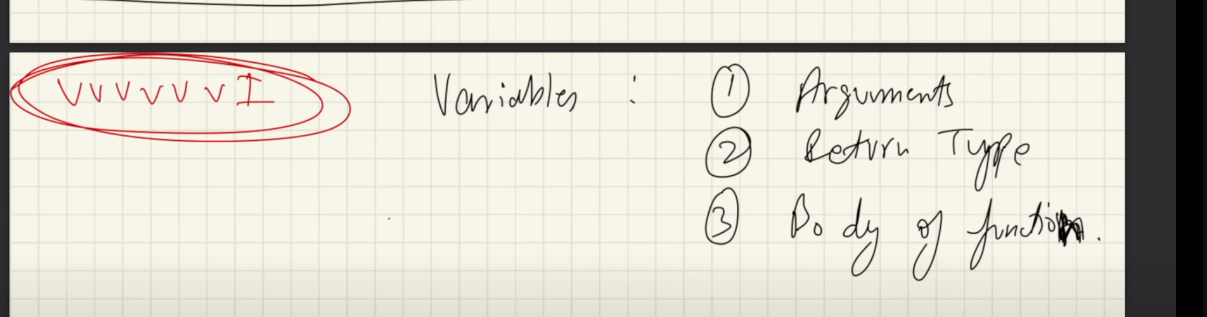 VVVVVVI Variables : ① Arguments
② Return Type
③ Body of function.